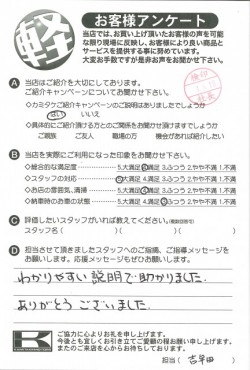 軽
お客様アンケート
当店では、お買い上げ頂いたお客様の声を可能
な限り現場に反映し、お客様により良い商品と
サービスを提供する事に努めています。
大変お手数ですが是非お声をお聞かせ下さい。
A 当店はご紹介を大切にしております。
ご紹介キャンペーンについてお聞かせ下さい。
◇カミタケご紹介キャンペーンのご説明はありましたでしょうか
はい いいえ
◇具体的にご紹介頂ける方とのご関係をお聞かせ頂けますでしょうか
ご親族 ご友人 職場の方 機会があれば紹介したい
B 当店を実際にご利用になった印象をお聞かせ下さい。
◇総合的な満足度 5.大満足 4.満足 3.ふつう 2.やや不満 1.不満
◇スタッフの対応 5.大満足 4.満足 3.ふつう 2.やや不満 1.不満
◇お店の雰囲気、清掃 5.大満足 4.満足 3.ふつう 2.やや不満 1.不満
◇納車時のお車の状態 5.大満足 4.満足 3.ふつう 2.やや不満 1.不満
C 評価したいスタッフがいれば教えてください。(複数回答可)
スタッフ名( )( )( )
D 担当させて頂きましたスタッフへのご指摘、ご指導メッセージを
お願いします。応援メッセージもぜひお願いします。
わかりやすい説明で助かりました。
ありがとうございました。
K
ご協力に心よりお礼を申し上げます。
今後とも宜しくお引き立てご愛顧の程お願い申し上げます。
またのご来店を心からお待ちしております。
担当( 吉早田 )